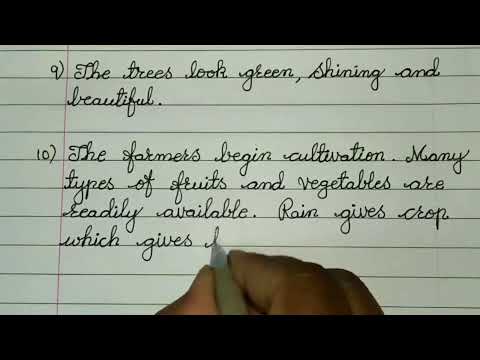 9) The trees look green, shining and
beautiful.
10) The farmers begin cultivation. Many
types of fruits and vegetables are
readily available. Rain gives crop
which gives